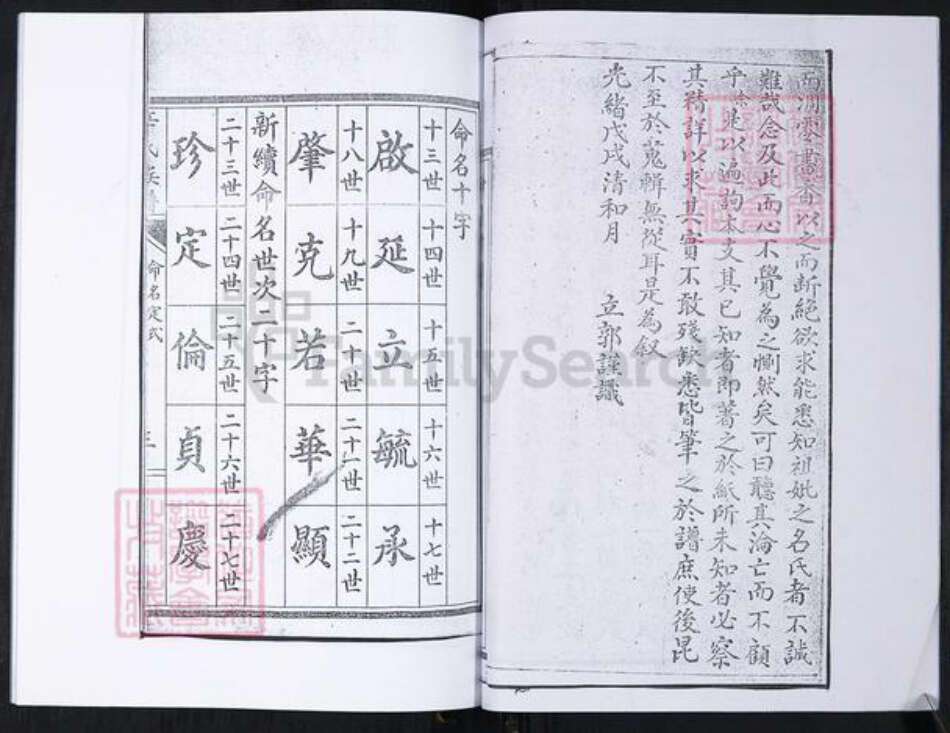 而淍零盡者以之而斷絕欲求能悉知祖妣之名氏者不誠
難哉念及此而心不覺為之惻然矣可曰聽其淪亡而不顧
乎 是以遍詢本支其已知者即著之於紙所未知者必察
其務詳以求其實不敢殘缺悉皆筆之於譜庶使後昆
不至於蒐輯無從耳是為叙
光緒戊戌清和月 立郭謹識
命名十字
十三世 十四世 十五世 十六世 十七世
啟 延 立 毓 承
十八世 十九世 二十世 二十一世 二十二世
肇 克 若 華 顯
新續命名世次二十字
二十三世 二十四世 二十五世 二十六世 二十七世
珍 定 倫 貞 慶
氏 譜 命名定式 三
FamilySearch